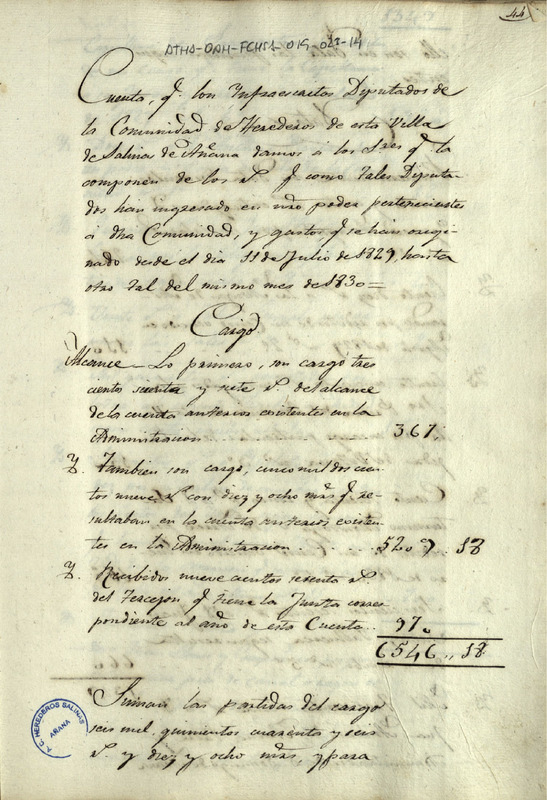 44
ATHA-DAH-FCHSA-019-023-14
Cuenta, q.e los Infraescritos Diputados de
la Comunidad de Herederos de esta Villa
de Salinas de Añana damos á los S.res q.e la
componen de los r.s q.e como tales Diputa
dos han ingresado en nro poder pertenecientes
á dha Comunidad, y gastos q.e se han origi
nado desde el dia 11 de Julio de 1829, hasta
otro tal del mismo mes de 1830=
Cargo
Alcance - Lo primero, son cargo tres
cientos sesenta y siete r.s del alcance
de la cuenta anterior existentes en la
Administracion 367.
Tambien son cargo, cinco mil dos cien
tos nueve r.s con diez y ocho mrs q.e re
sultaban en la cuenta anterior existen
tes en la Administracion . . . . 5209 .. 18
Recibidos nueve cientos setenta r.s
del Tercejon q.e tiene la Junta corres
pondiente al año de esta Cuenta .. 970
6546 .. 18
Suman las partidas del cargo
seis mil quinientos cuarenta y seis
r.s y diez y ocho mrs, y para
T. C. HEREDEROS SALINAS
AÑANA